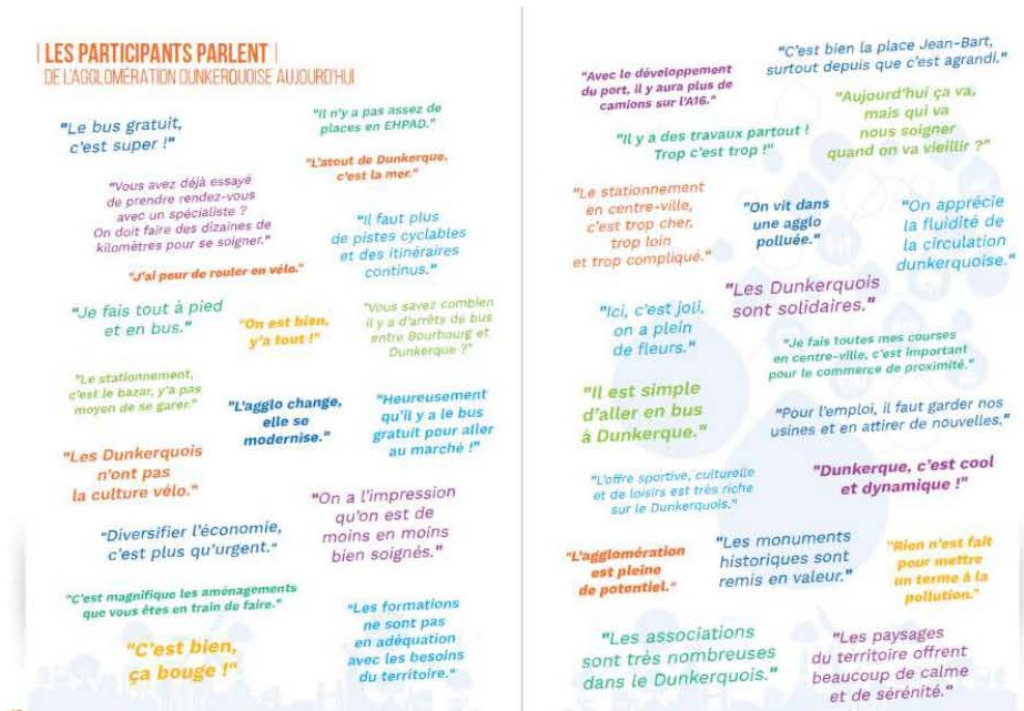 | LES PARTICIPANTS PARLENT |
DE L'AGGLOMÉRATION DUNKERQUOISE AUJOURD'HUI
"Le bus gratuit,
c'est super !"
"Il n'y a pas assez de
places en EHPAD."
"L'atout de Dunkerque,
c'est la mer."
"Vous avez déjà essayé
de prendre rendez-vous
avec un spécialiste ?
On doit faire des dizaines de
kilomètres pour se soigner."
"Il faut plus
de pistes cyclables
et des itinéraires
continus."
"J'ai peur de rouler en vélo."
"Je fais tout à pied
et en bus."
"On est bien,
y'a tout !"
"Vous savez combien
il y a d'arrêts de bus
entre Bourbourg et
Dunkerque ?"
"Le stationnement,
c'est le bazar, y'a pas
moyen de se garer."
"L'agglo change,
elle se
modernise."
"Heureusement
qu'il y a le bus
gratuit pour aller
au marché !"
"Les Dunkerquois
n'ont pas
la culture vélo."
"On a l'impression
qu'on est de
moins en moins
bien soignés."
"Diversifier l'économie,
c'est plus qu'urgent."
"C'est magnifique les aménagements
que vous êtes en train de faire."
"Les formations
ne sont pas
en adéquation
avec les besoins
du territoire."
"C'est bien,
ça bouge !"
"Avec le développement
du port, il y aura plus de
camions sur l'A16."
"C'est bien la place Jean-Bart,
surtout depuis que c'est agrandi."
"Aujourd'hui ça va,
mais qui va
nous soigner
quand on va vieillir ?"
"Il y a des travaux partout !
Trop c'est trop !"
"Le stationnement
en centre-ville,
c'est trop cher,
trop loin
et trop compliqué."
"On vit dans
une agglo
polluée."
"On apprécie
la fluidité de
la circulation
dunkerquoise."
"Les Dunkerquois
sont solidaires."
"Ici, c'est joli,
on a plein
de fleurs."
"Je fais toutes mes courses
en centre-ville, c'est important
pour le commerce de proximité."
"Il est simple
d'aller en bus
à Dunkerque."
"Pour l'emploi, il faut garder nos
usines et en attirer de nouvelles."
"L'offre sportive, culturelle
et de loisirs est très riche
sur le Dunkerquois."
"Dunkerque, c'est cool
et dynamique !"
"L'agglomération
est pleine
de potentiel."
"Les monuments
historiques sont
remis en valeur."
"Rien n'est fait
pour mettre
un terme à la
pollution."
"Les associations
sont très nombreuses
dans le Dunkerquois."
"Les paysages
du territoire offrent
beaucoup de calme
et de sérénité."